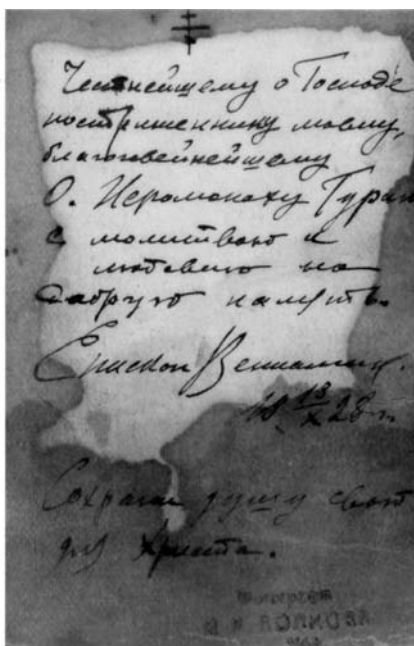 Честнейшему о Господе
постриженнику моему,
благоговейнейшему
О. Иеромонаху Гурию
с молитвою и
любовию на
добрую память.
Епископ Вениамин.
19 18/X 28 г.
Сохрани душу свою
для Христа.